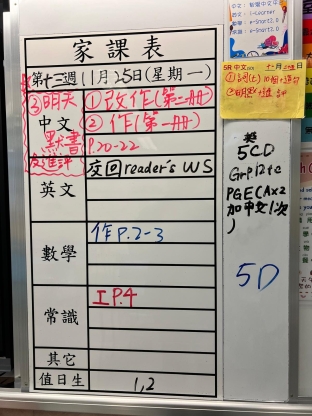 家課表
第十三週 11月25日(星期一)
③明天
默書
及進評
中文
①改作(第二冊)
②作(第一冊)
P.20-22
英文
交回reader's WS
數學
作P.2-3
常識
工P.4
其它
值日生
1,2
5R 中文
英
5CD
Grp 12 tc
PGE(Ax2
加中文1次
)
5D
i-Learner